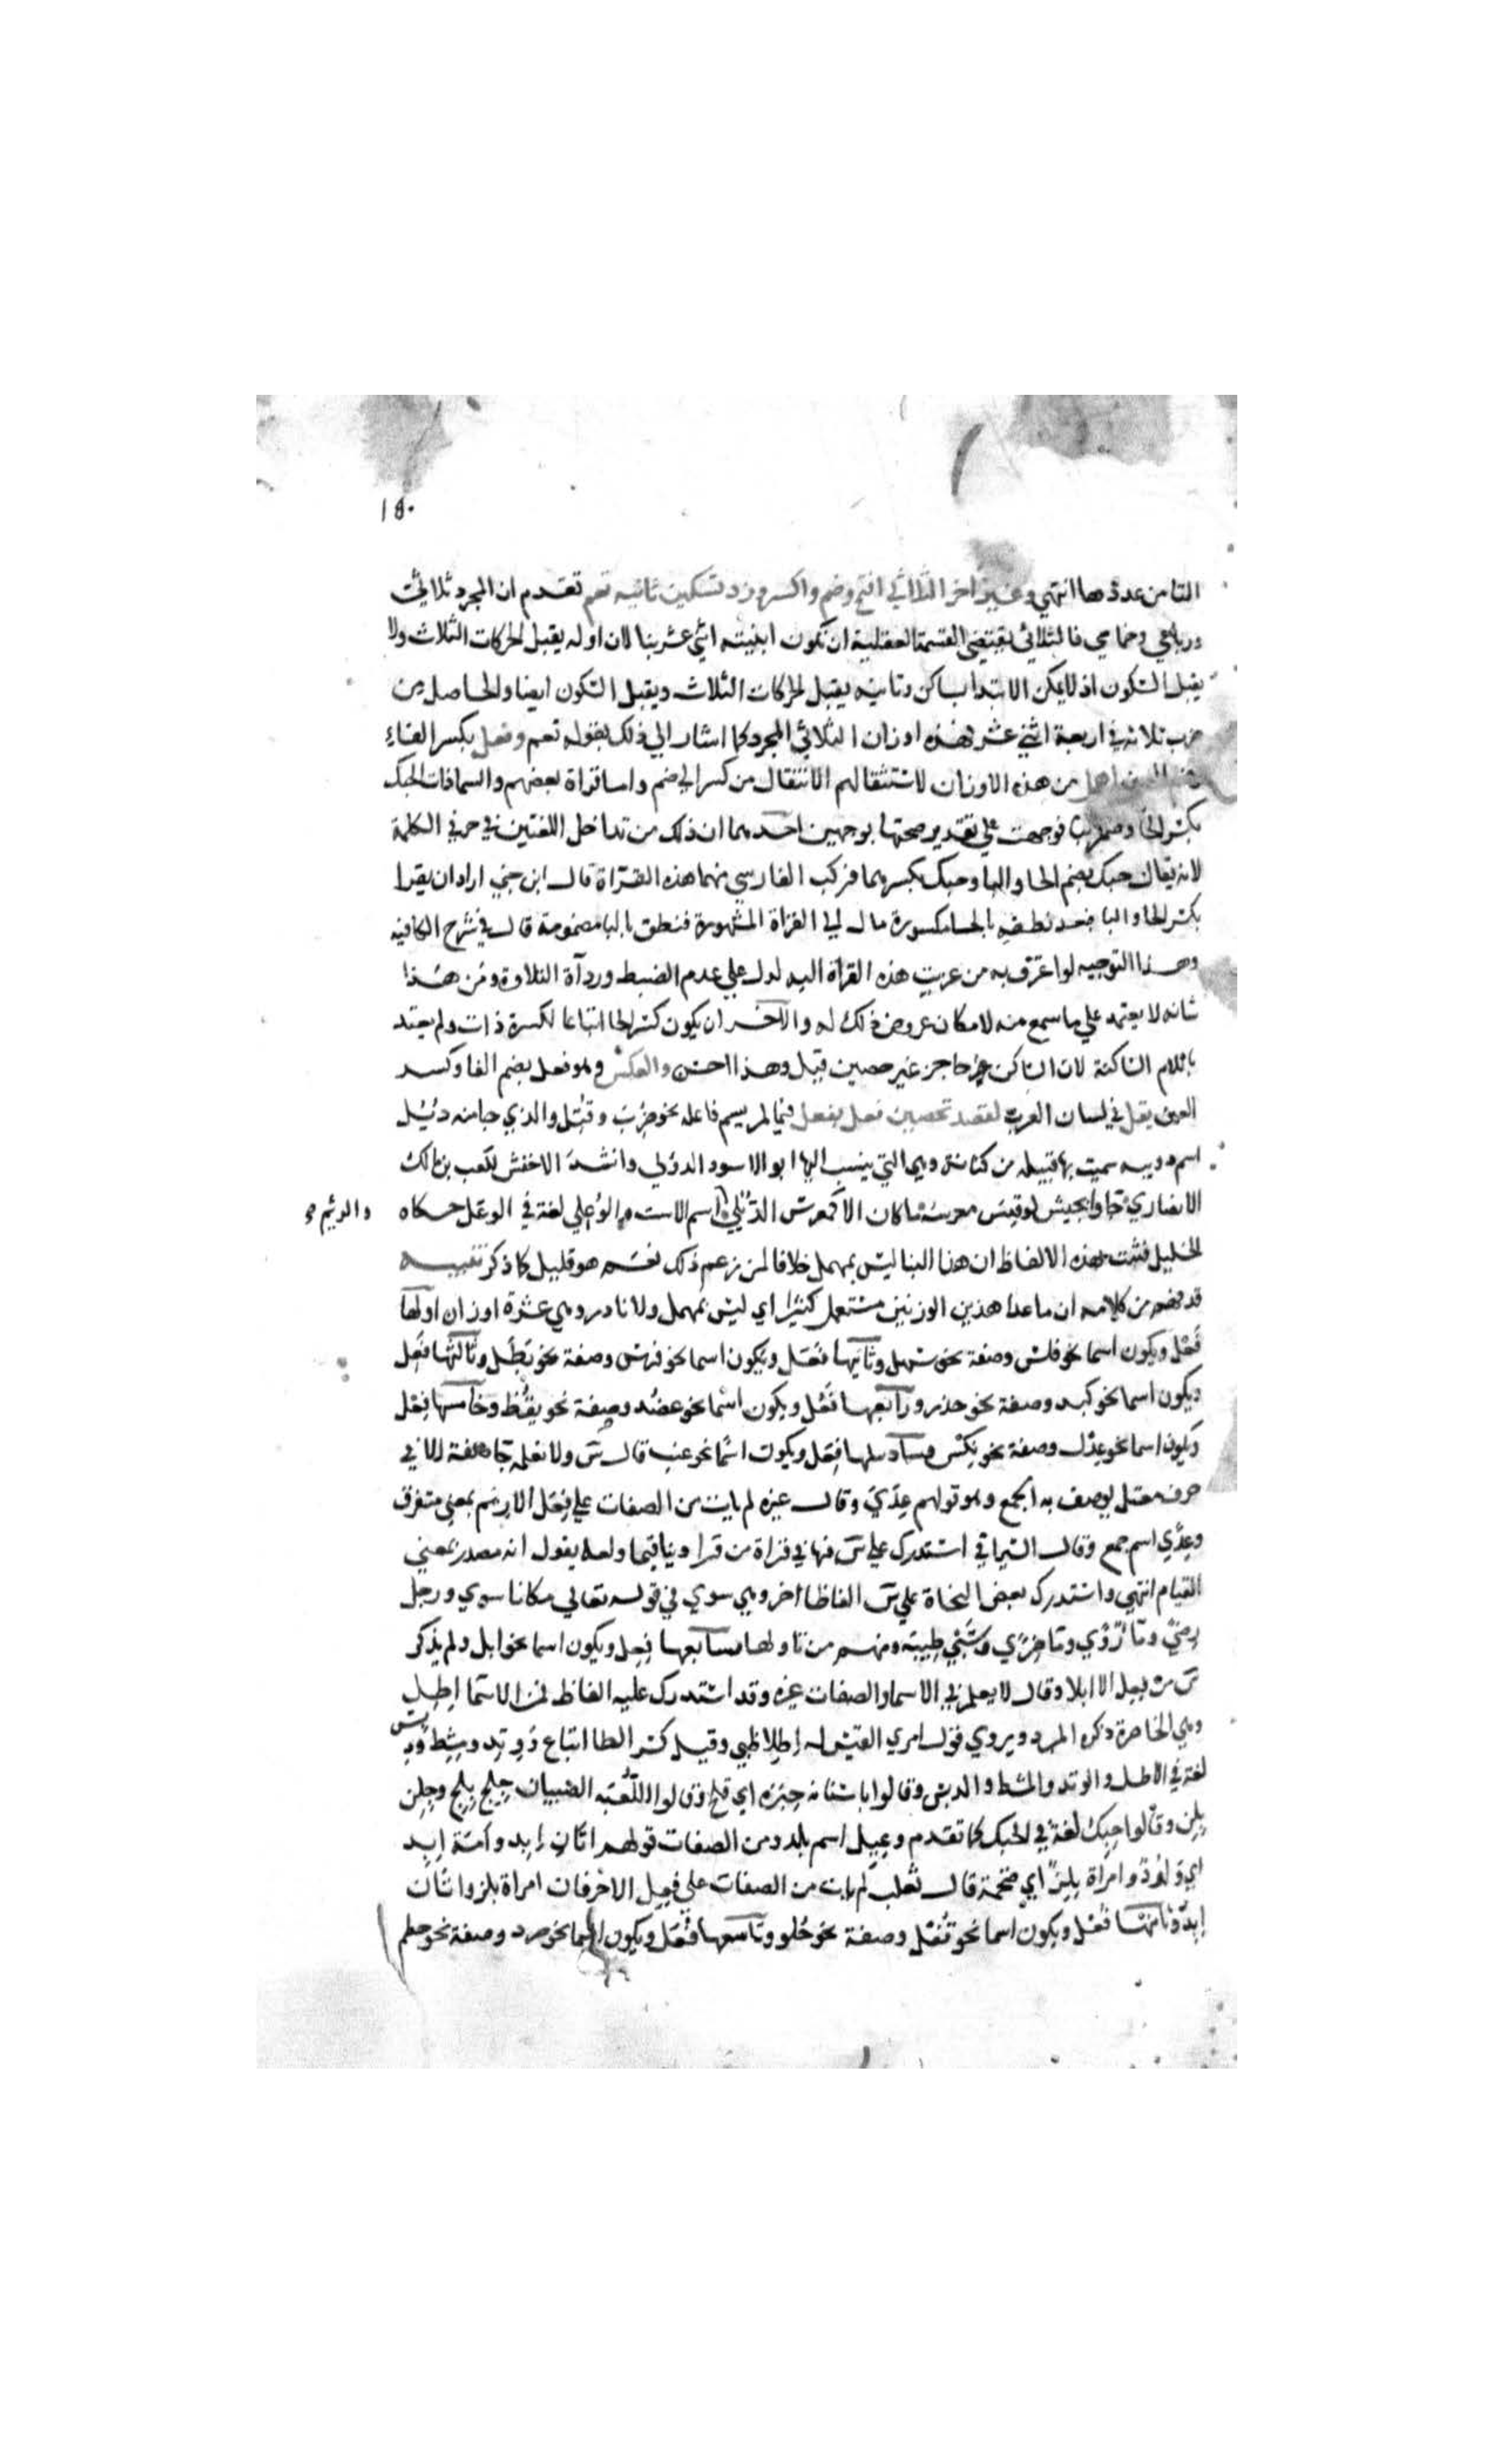 ١٥٠
الثامن عددها انتهي وغير آخر الثلاثي افتح وضم واكسر وزد تسكين ثانيه تعم تقدم ان المجرد ثلاثي
ورباعي وخماسي فالثلاثي تقتضي القسمة العقلية ان تكون ابنيته اثني عشر بنا لان اوله يقبل الحركات الثلاث ولا
يقبل السكون اذ لا يمكن الابتدا بساكن وثانيه يقبل الحركات الثلاث ويقبل السكون ايضا والحاصل من
ضرب ثلاثة في اربعة اثني عشر فهذه اوزان الثلاثي المجرد كما اشار الي ذلك بقوله تعم وفعل بكسر الفاء
وضم العين اهمل من هذه الاوزان لاستثقالهم الانتقال من كسر الي ضم واما قراة بعضهم والسما ذات الحبك
بكسر الحا وضم البا فوجهت علي تقدير صحتها بوجهين احدهما ان ذلك من تداخل اللغتين في حرفي الكلمة
لانه يقال حبك بضم الحا والبا وحبك بكسرهما فركب القاري منهما هذه القراة قال ابن جني اراد ان يقرا
بكسر الحا والبا فبعد نطقه بالحا مكسورة مال الي القراة المشهورة فنطق بالبا مضمومة قال في شرح الكافيه
وهذا التوجيه لو اعترف به من عزيت هذه القراة اليه لدل علي عدم الضبط ورداة التلاوة ومن هذا
شانه لا يعتمد علي ما سمع منه لامكان عروض ذلك له والآخر ان يكون كسر الحا اتباعا لكسرة ذات ولم يعتد
باللام الساكنة لان الساكن حاجز غير حصين قيل وهذا احسن والعكس وهو فعل بضم الفا وكسر
العين يقل في لسان العرب لقصد تخصيص فعل بفعل فيما لم يسم فاعله نحو ضرب وقتل والذي جا منه دئل
اسم دويبه سميت بها قبيله من كنانة وهي التي ينسب اليها ابو الاسود الدؤلي وانشد الاخفش لكعب بن مالك
الانصاري جاوا بجيش لو قيس معرسه ما كان الا كمعرس الدئل اسم الاست والوعل لغة في الوعل حكاه
والرئم
الخليل فثبت بهذه الالفاظ ان هذا البنا ليس بمهمل خلافا لمن زعم ذلك نعم هو قليل كما ذكر تنبيه
قد فهم من كلامه ان ما عدا هذين الوزنين مستعمل كثيرا اي ليس بمهمل ولا نادر وهي عشرة اوزان اولها
فعل ويكون اسما نحو فلس وصفة نحو سهل وثانيها فعل ويكون اسما نحو فرس وصفة نحو بطل وثالثها فعل
ويكون اسما نحو كبد وصفة نحو حذر ورابعها فعل ويكون اسما نحو عضد وصفة نحو يقظ وخامسها فعل
ويكون اسما نحو عدل وصفة نحو نكس وسادسها فعل ويكون اسما نحو عنب قال س ولا نعلمه جا صفة الا في
حرف معتل يوصف به الجمع وهو قولهم عدي وقال غيره لم يات من الصفات علي فعل الا زيم بمعني متفرق
وعدي اسم جمع وقال السيرافي استدرك علي س قيما في قراة من قرا دينا قيما ولعله يقول انه مصدر بمعني
القيام انتهي واستدرك بعض النحاة علي س الفاظا اخر وهي سوي في قوله تعالي مكانا سوي ورجل
رضي وما روي وما صري وسبي طيبة ومنهم من تاولها وسابعها فعل ويكون اسما نحو ابل ولم يذكر
س من فعل الا ابلا وقال لا يعلم في الاسما والصفات غيره وقد استدرك عليه الفاظ فمن الاسما اطل
وهي الخاصرة ذكره المبرد ويروي قول امري القيس له اطلا ظبي وقيل كسر الطا اتباع ووتد ومشط ودبس
لغة في الاطل والوتد والمشط والدبس وقالوا باسنانه حبرة اي قلح وقالوا للعبة الصبيان جلج بلج وجلن
بلن وقالوا حبك لغة في الحبك كما تقدم وعيل اسم بلد ومن الصفات قولهم اتان ابد وامة ابد
اي ولود وامراة بلز اي ضخمة قال ثعلب لم يات من الصفات علي فعل الا حرفان امراة بلز واتان
ابد وثامنها فعل ويكون اسما نحو قفل وصفة نحو حلو وتاسعها فعل ويكون اسما نحو صرد وصفة نحو حطم